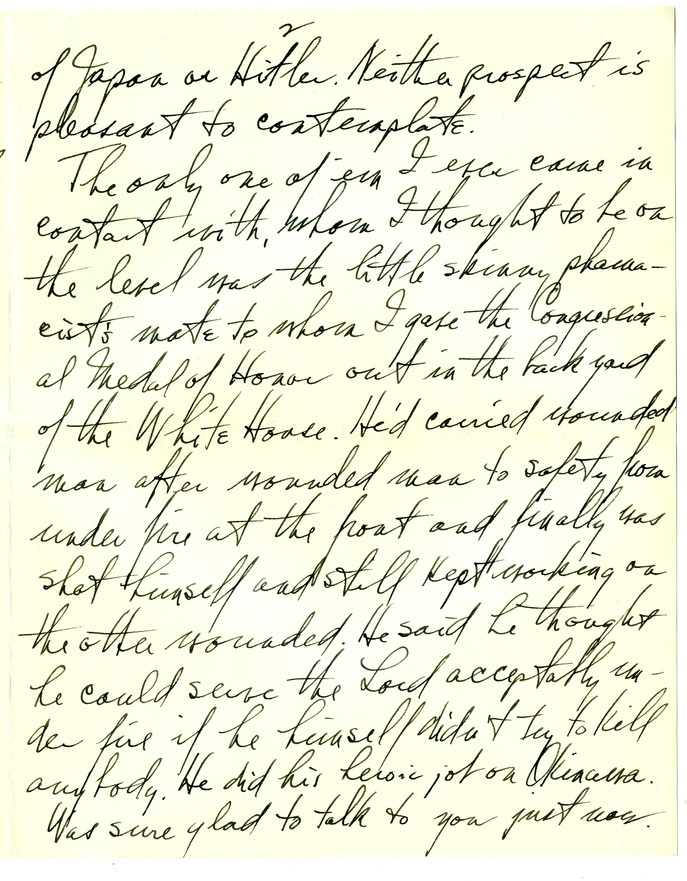 2
of Japan or Hitler. Neither prospect is
pleasant to contemplate.
The only one of 'em I ever came in
contact with, whom I thought to be on
the level was the little skinny pharma-
cist's mate to whom I gave the Congression-
al Medal of Honor out in the back yard
of the White House. He'd carried wounded
man after wounded man to safety from
under fire at the front and finally was
shot himself and still kept working on
the other wounded. He said he thought
he could serve the Lord acceptably un-
der fire if he himself didn't try to kill
anybody. He did his heroic job on Okinawa.
Was sure glad to talk to you just now.